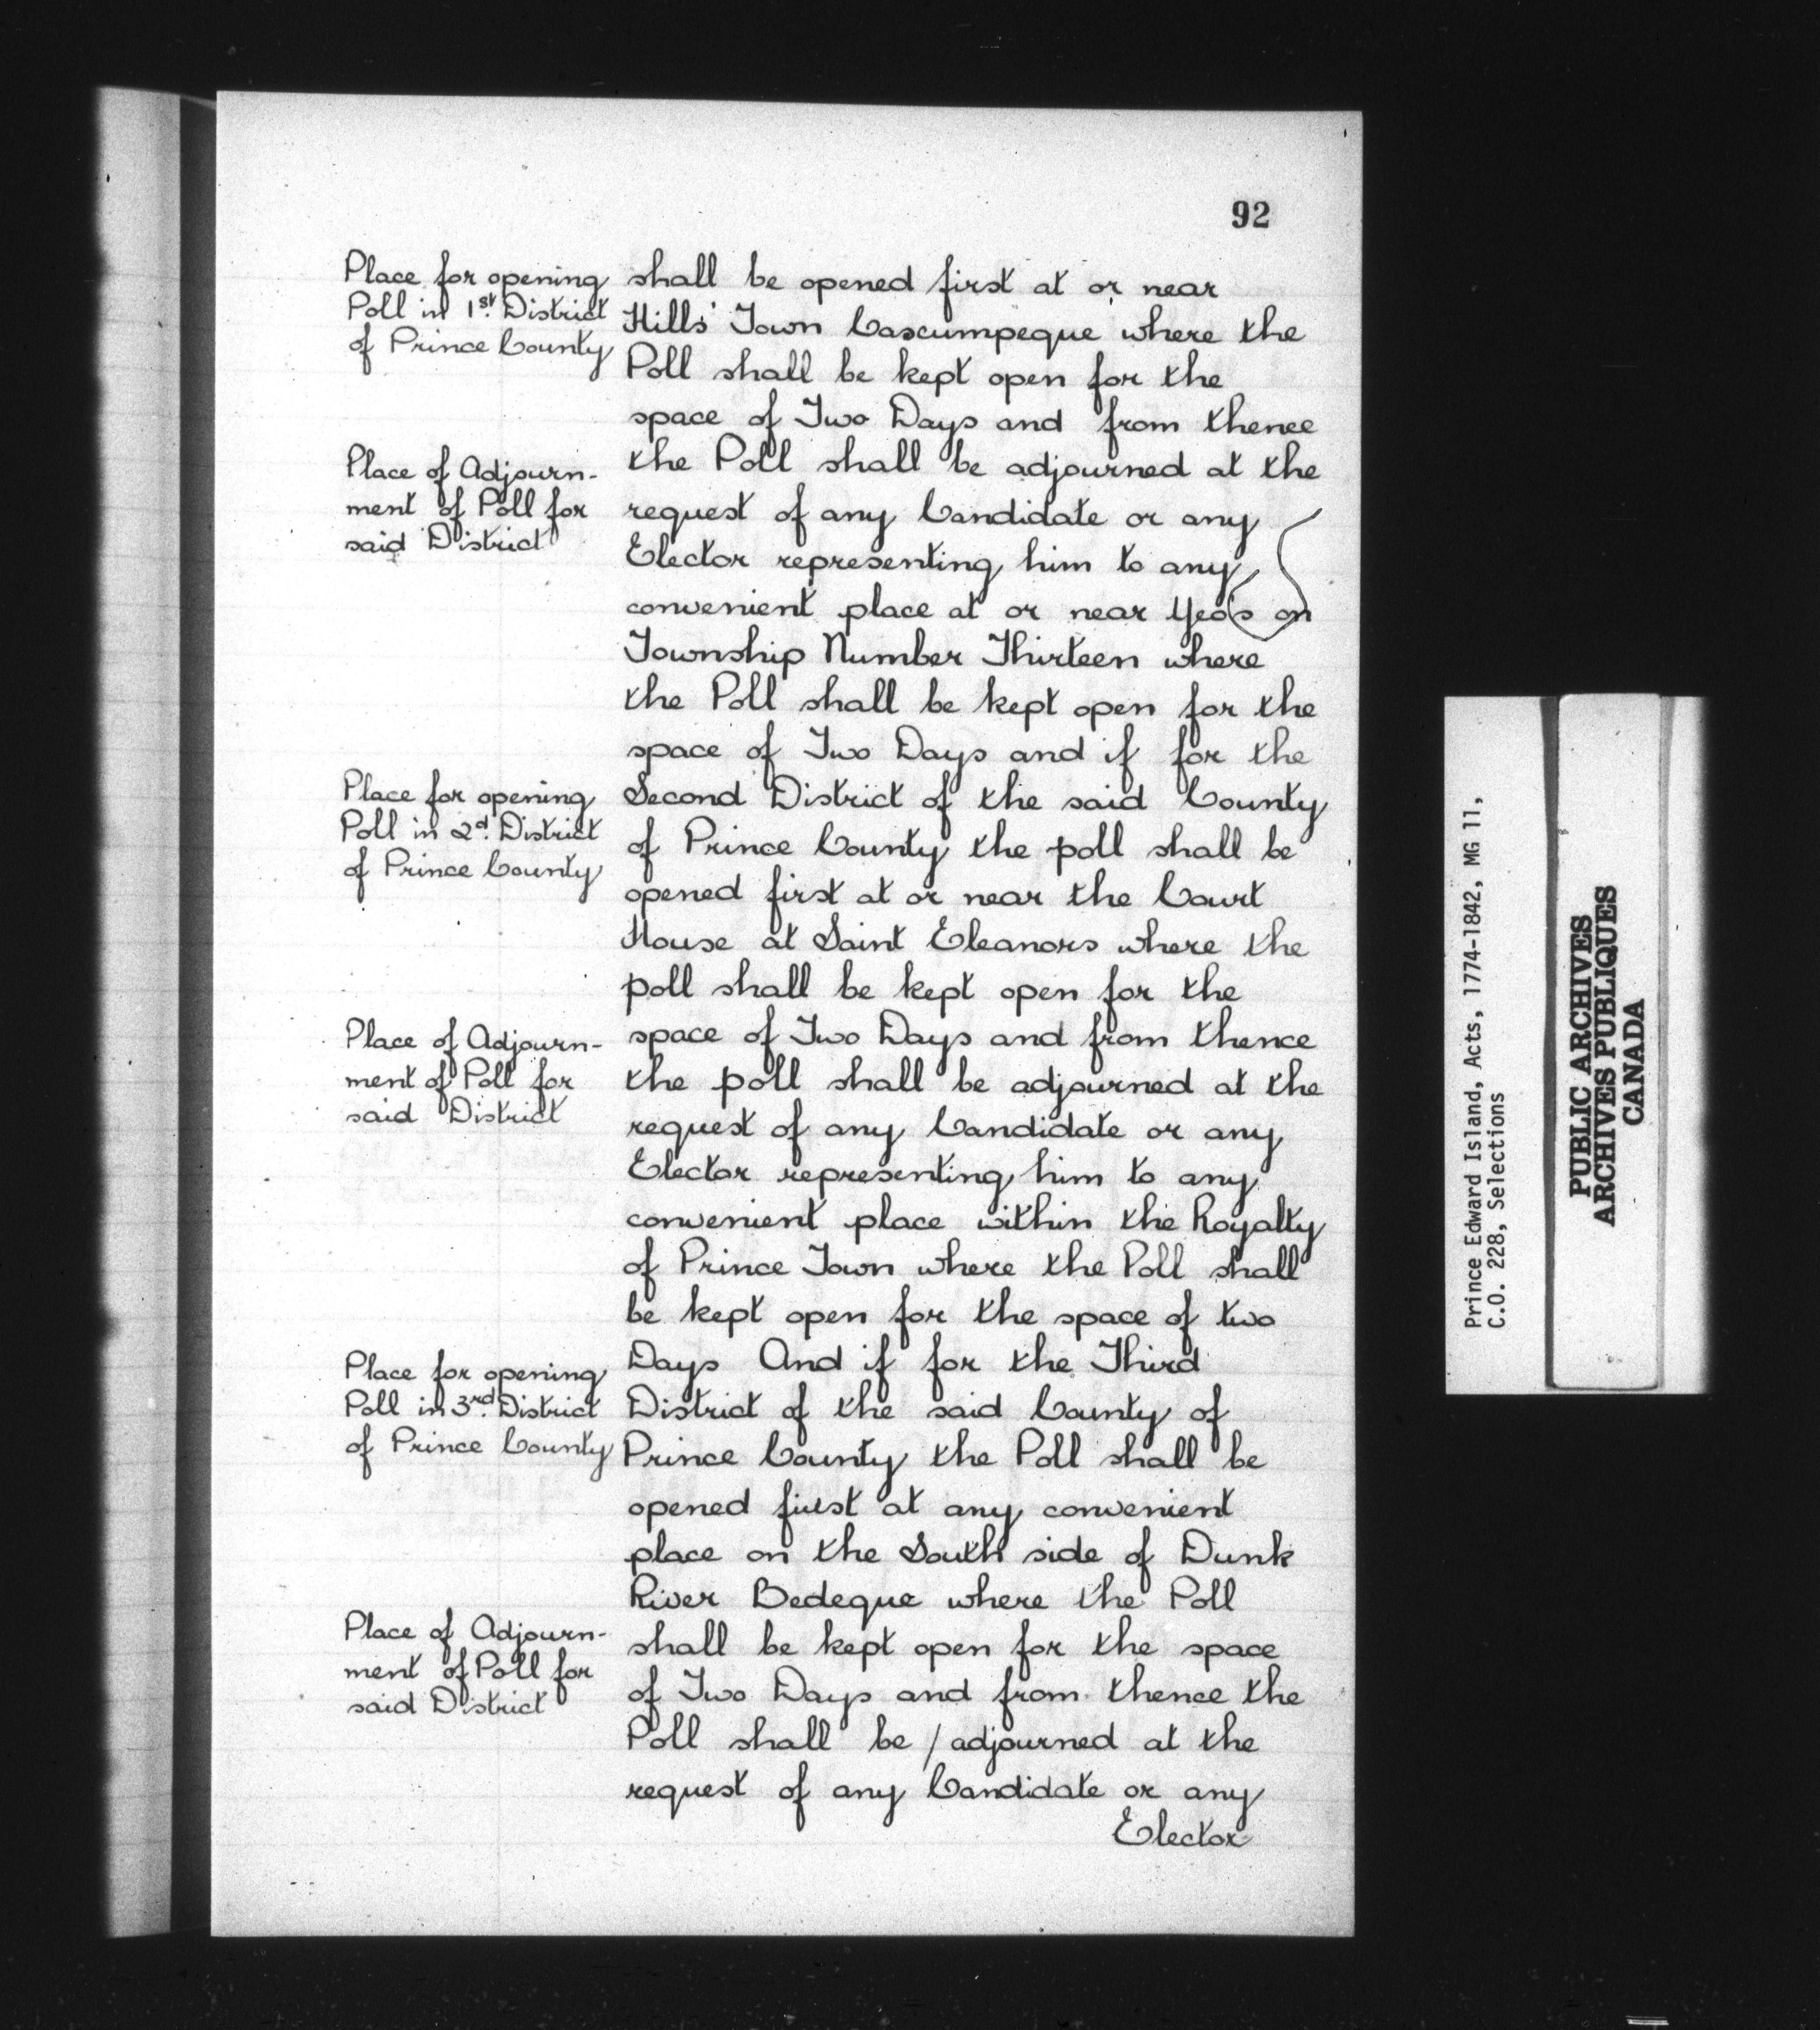 92
Place for opening
Poll in 1st. District
of Prince County
shall be opened first at or near
Hills' Town Cascumpeque where the
Poll shall be kept open for the
space of Two Days and from thence
Place of Adjourn-
ment of Poll for
said District
the Poll shall be adjourned at the
request of any Candidate or any
Elector representing him to any
convenient place at or near Yeo's on
Township Number Thirteen where
the Poll shall be kept open for the
space of Two Days and if for the
Place for opening
Poll in 2d. District
of Prince County
Second District of the said County
of Prince County the poll shall be
opened first at or near the Court
House at Saint Eleanors where the
poll shall be kept open for the
Place of Adjourn-
ment of Poll for
said District
space of Two Days and from thence
the poll shall be adjourned at the
request of any Candidate or any
Elector representing him to any
convenient place within the Royalty
of Prince Town where the Poll shall
be kept open for the space of two
Place for opening
Poll in 3rd. District
of Prince County
Days And if for the Third
District of the said County of
Prince County the Poll shall be
opened first at any convenient
place on the South side of Dunk
River Bedeque where the Poll
Place of Adjourn-
ment of Poll for
said District
shall be kept open for the space
of Two Days and from thence the
Poll shall be / adjourned at the
request of any Candidate or any
Elector
Prince Edward Island, Acts, 1774-1842, MG 11,
C.O. 228, Selections
PUBLIC ARCHIVES
ARCHIVES PUBLIQUES
CANADA